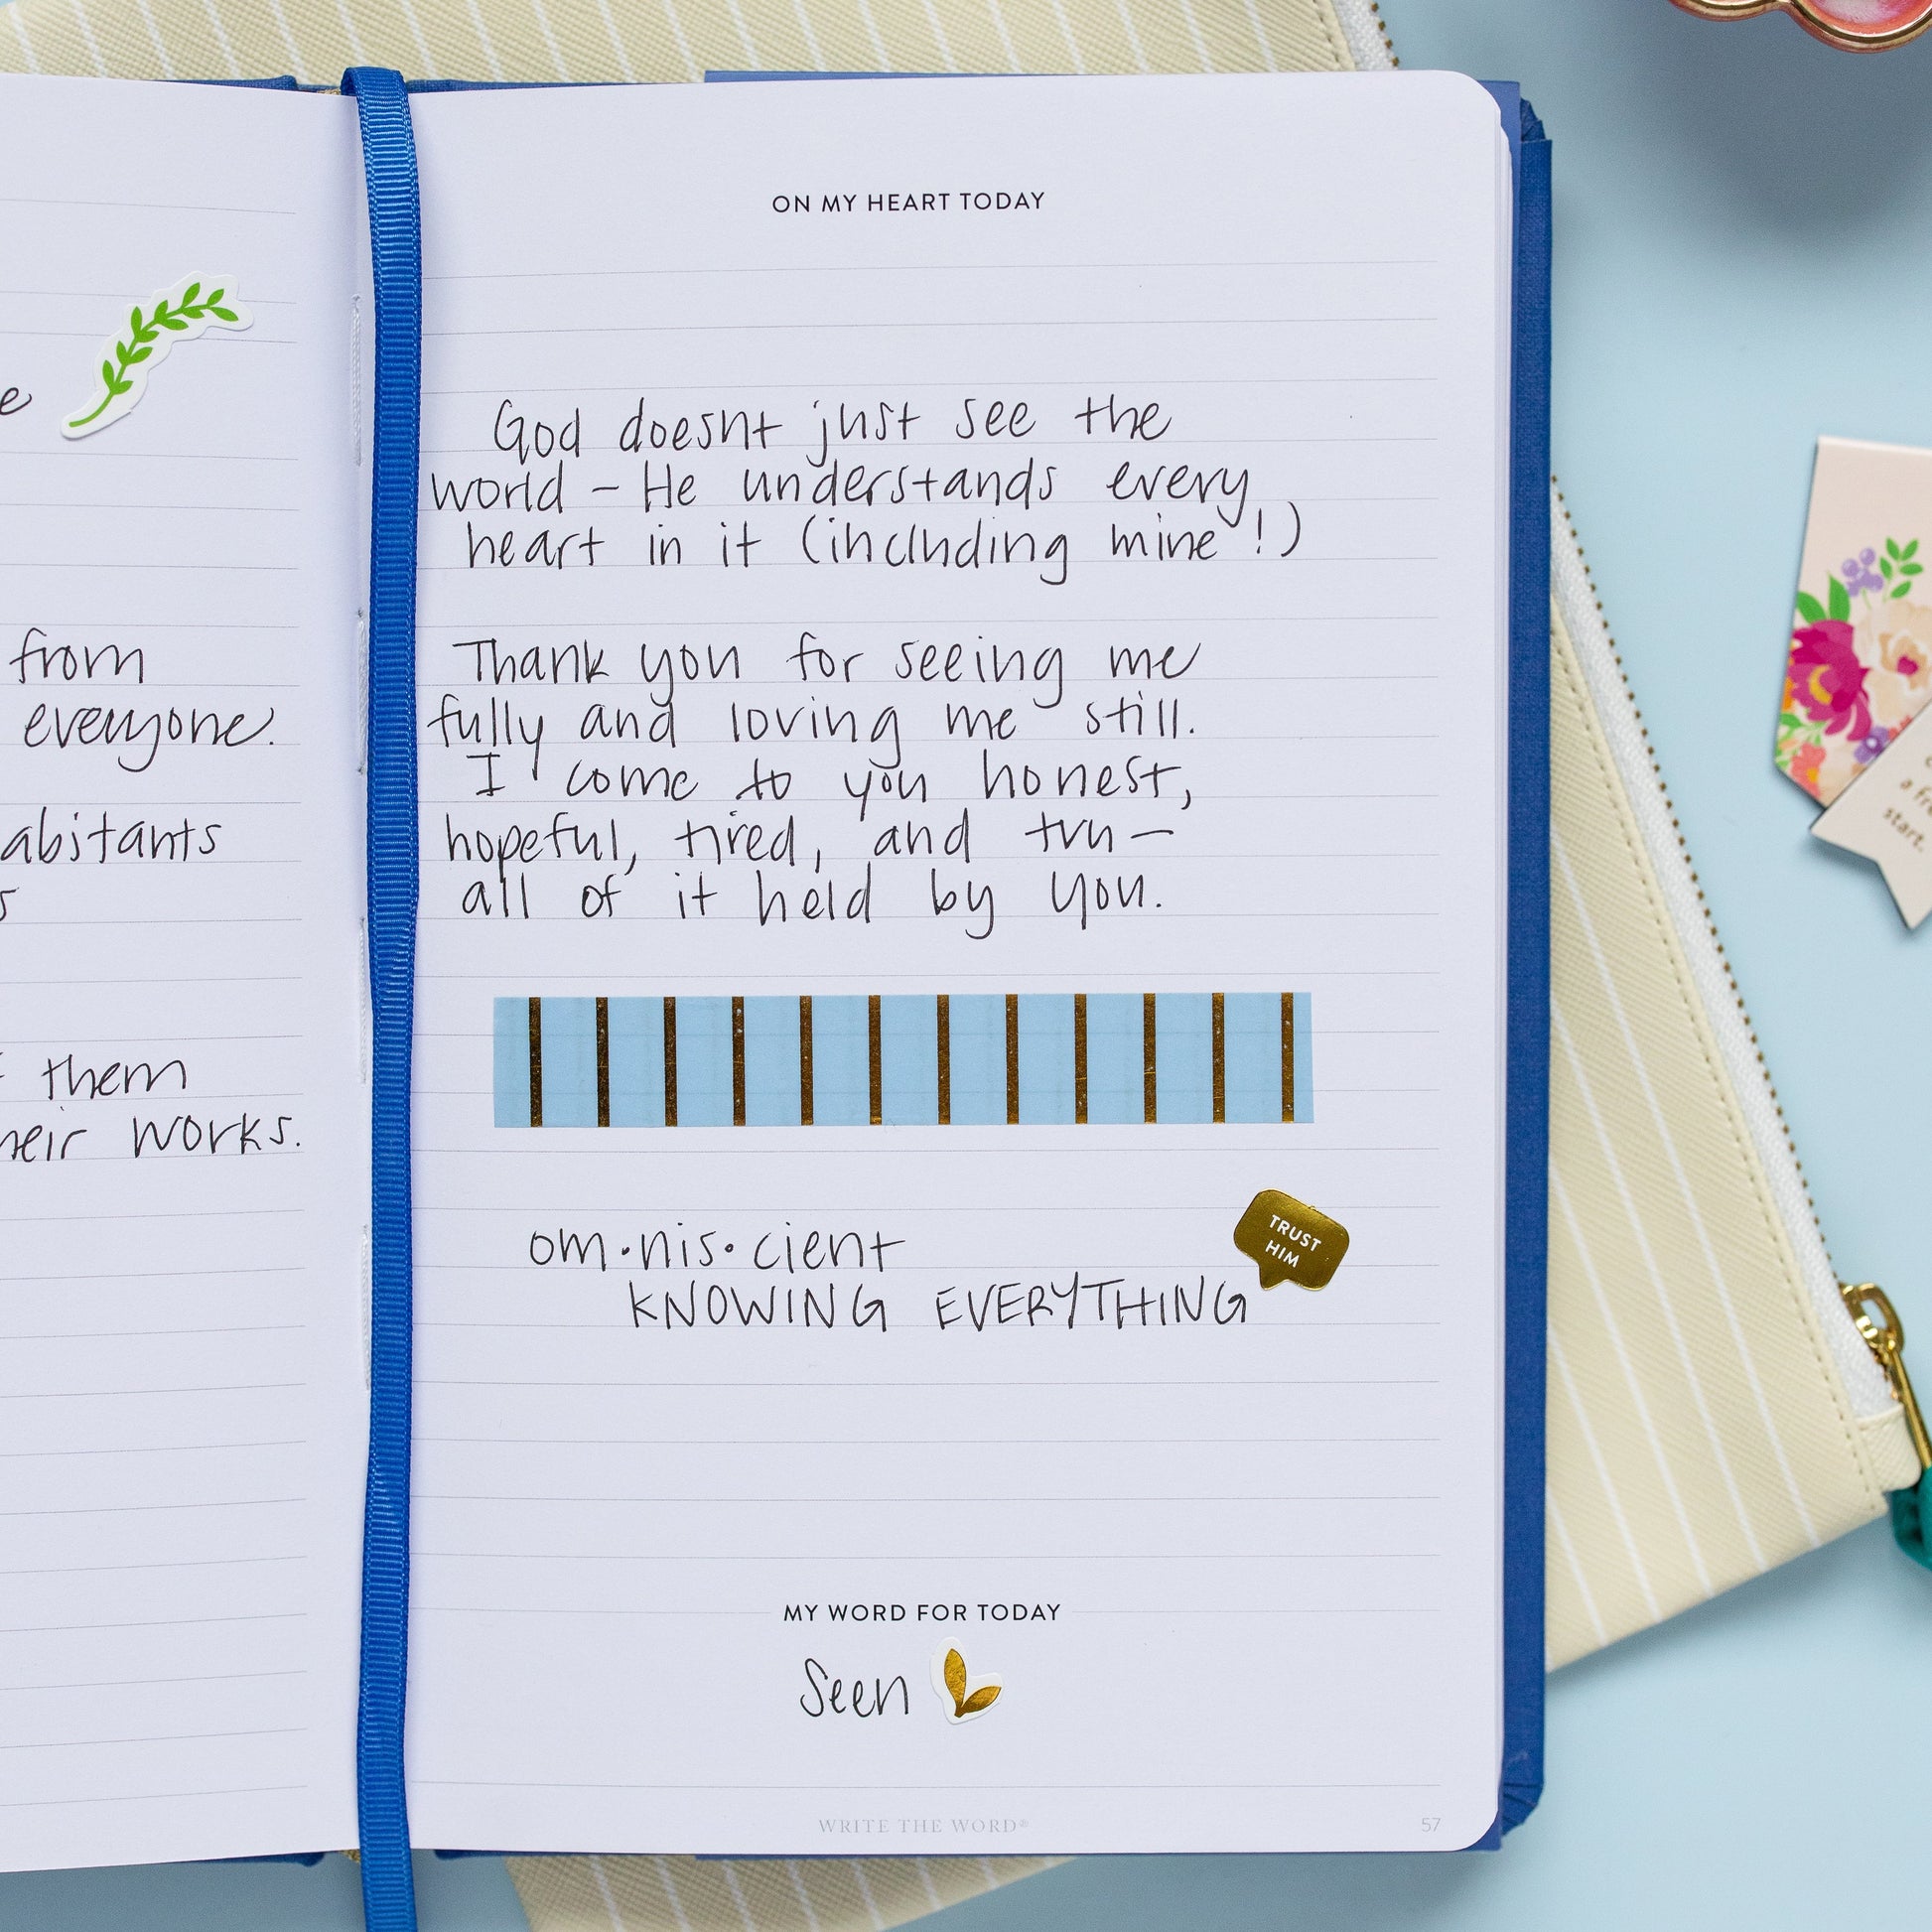 e
from
everyone.
abitants
s
them
heir works.
ON MY HEART TODAY
God doesnt just see the
world – He understands every
heart in it (including mine!)
Thank you for seeing me
fully and loving me still.
I come to you honest,
hopeful, tired, and tru—
all of it held by you.
om·nis·cient
KNOWING EVERYTHING
TRUST
HIM
MY WORD FOR TODAY
Seen
WRITE THE WORD®
57
start.